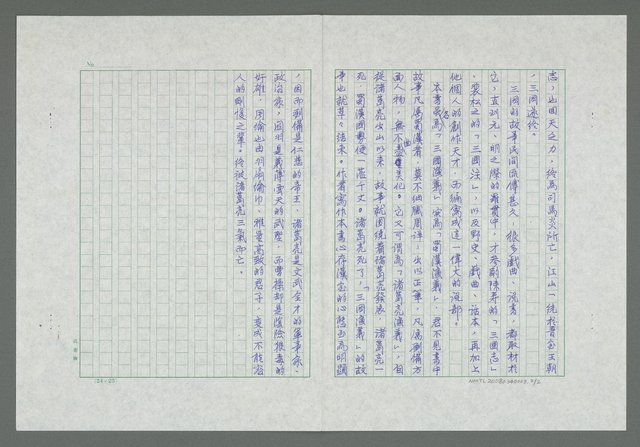 志，也因天之力，終為司馬炎所亡，江山一統於晉室王朝
，三國遂終。
三國的故事民間流傳甚久，很多戲曲、說書，都取材於
它，直到元、明之際的羅貫中，才參酌陳壽的「三國志」
、裴松之的「三國注」，以及野史、戲曲、話本，再加上
他個人的創作天才，而編寫成這一偉大的說部。
本書雖為「三國演義」，實為「蜀漢演義」，君不見書中
故事凡屬蜀漢者，莫不做周詳，出以正筆，凡屬劉備方
面人物，無不美化。它又可謂為「諸葛亮演義」，自
從諸葛亮出山以來，故事就圍繞着諸葛亮發展，諸葛亮一
死，蜀漢國勢便一落千丈。諸葛亮死了，「三國演義」的故
事也就草々結束。作者寫作本書心存漢室的心態至為明顯
，因而劉備是仁慈的帝王，諸葛亮是文武全才的軍事家、
政治家，關羽是義薄雲天的武聖，而曹操卻是陰險狠毒的
奸雄，周瑜也由羽扇綸巾、雅量高致的君子，變成不能容
人的剛愎之輩。終被諸葛亮三氣而亡。
No
(24×25)